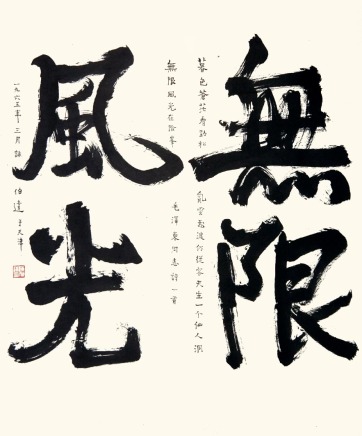 無限
暮色蒼茫看勁松 亂雲飛渡仍從容天生一个仙人洞
無限風光在險峯 毛澤東同志詩一首
風光
一九六五年三月 伯達于天津